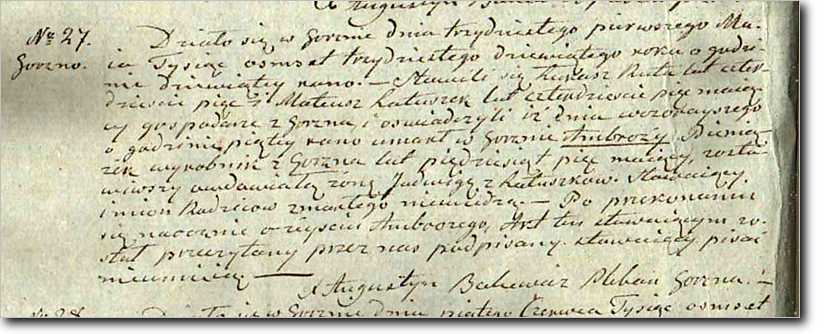 X Augustyn
№ 27. Działo się w Gorznie dnia trzydziestego pierwszego Ma-
Gorzno. ia Tysiąc osmset trzydziestego dziewiątego roku o godzi-
nie dziewiątey rano. — Stawili się Łukasz Ruta lat czter-
dzieście pięć i Mateusz Łatuszek lat czterdzieście pięć maią-
cy gospodarze z Gorzna, i oświadczyli iż dnia wczorayszego
o godzinie piątey rano umarł w Gorznie Ambroży
wyrobnik z Gorzna lat pięćdziesiąt pięć maiący, zosta-
wiwszy owdowiałą żonę Jadwigę z Łatuszków. Stawaiący
imion Rodziców zmarłego niewiedzą. — Po przekonaniu
się naocznie o zeyściu Ambrożego, Akt ten stawaiącym zo-
stał przeczytany przez nas podpisany. stawaiący pisać
nieumieią. —
X Augustyn Pleban Gorzna.
№ 28. Działo się w Gorznie dnia piątego Czerwca Tysiąc osmset